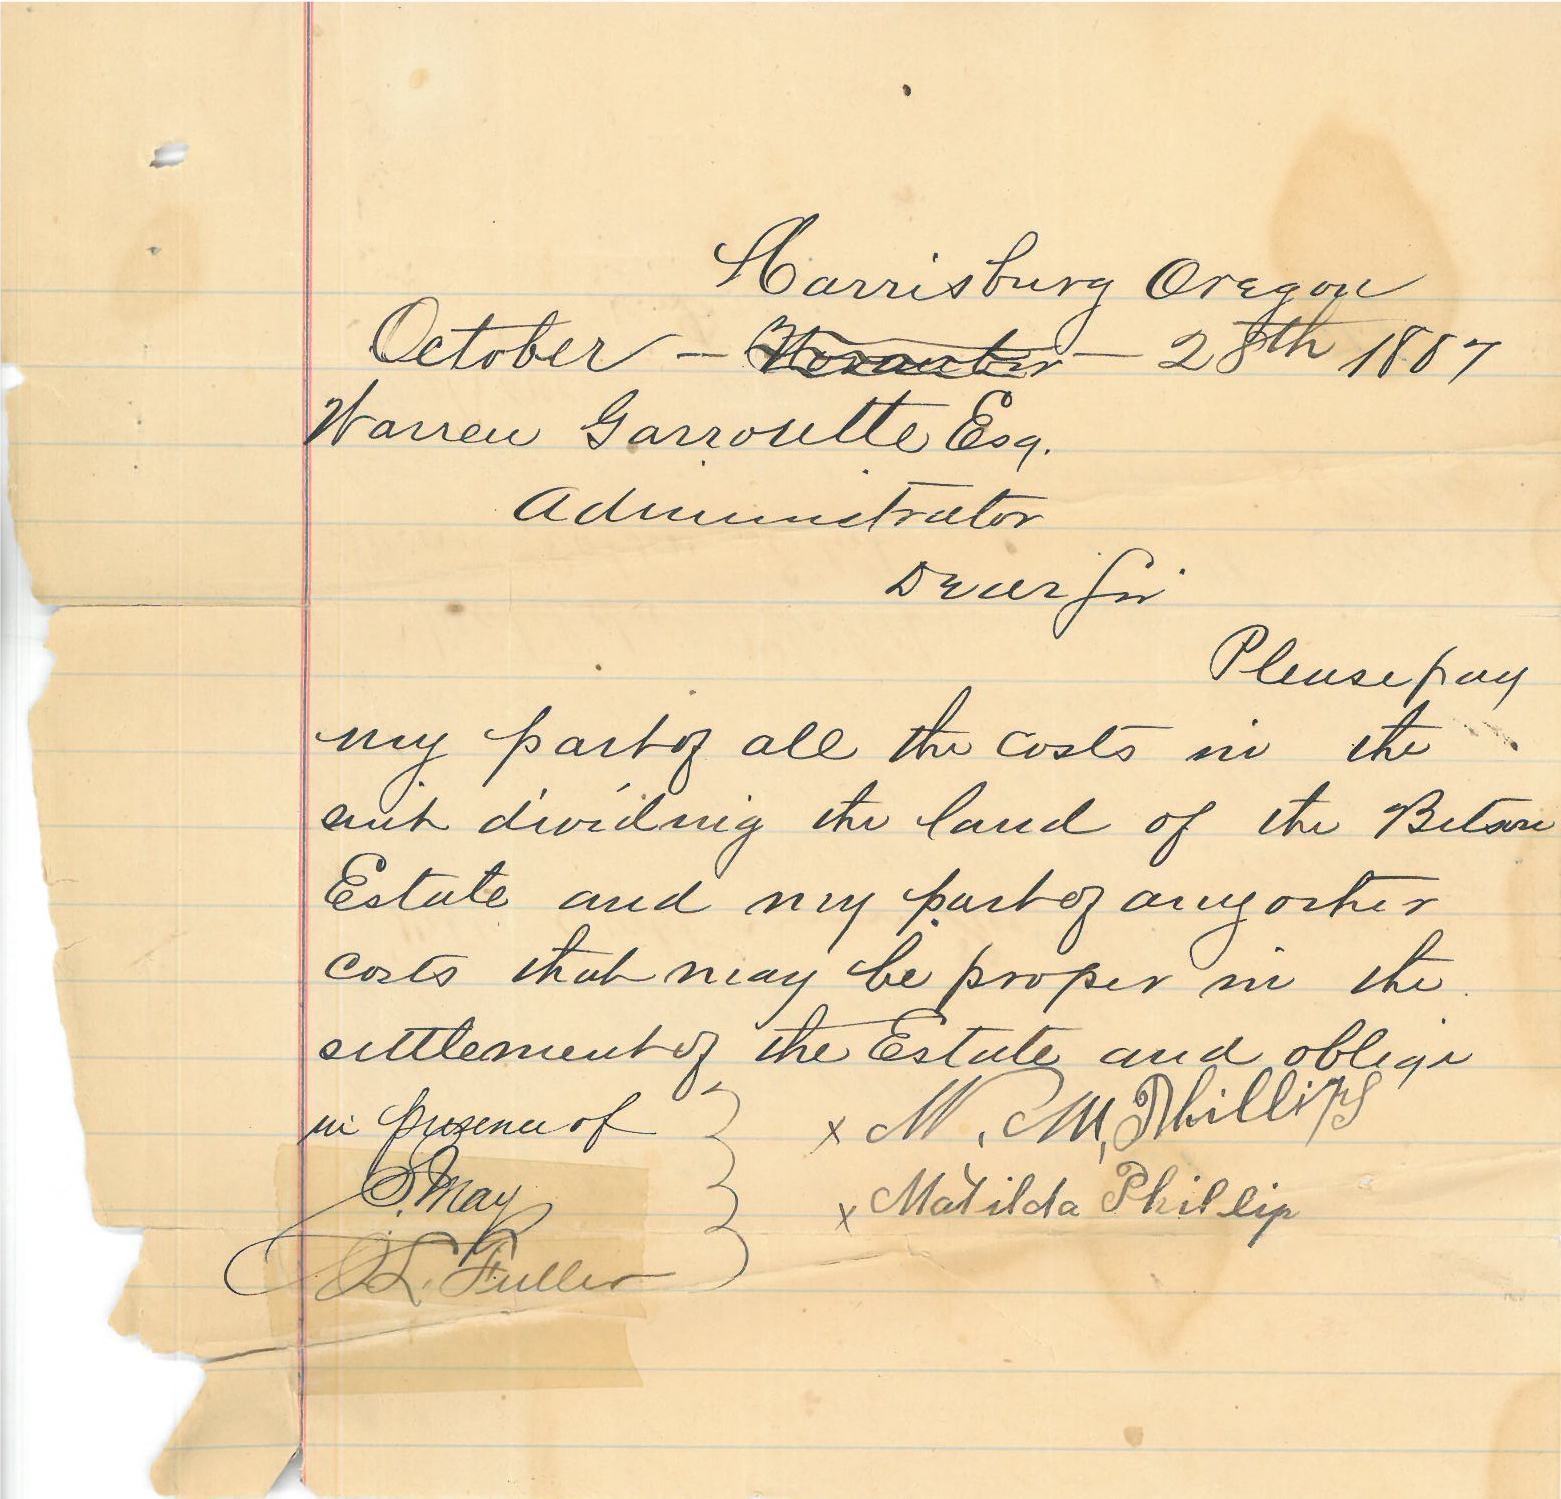 Harrisburg Oregon
October — November — 28th 1887
Warren Garroutte Esq.
Administrator
Dear Sir
Please pay
my part of all the costs in the
suit dividing the land of the
Estate and my part of any other
costs that may be proper in the
settlement of the Estate and oblige
in presence of
x M. M. Phillips
S. May
x Matilda Phillip
L. Fuller